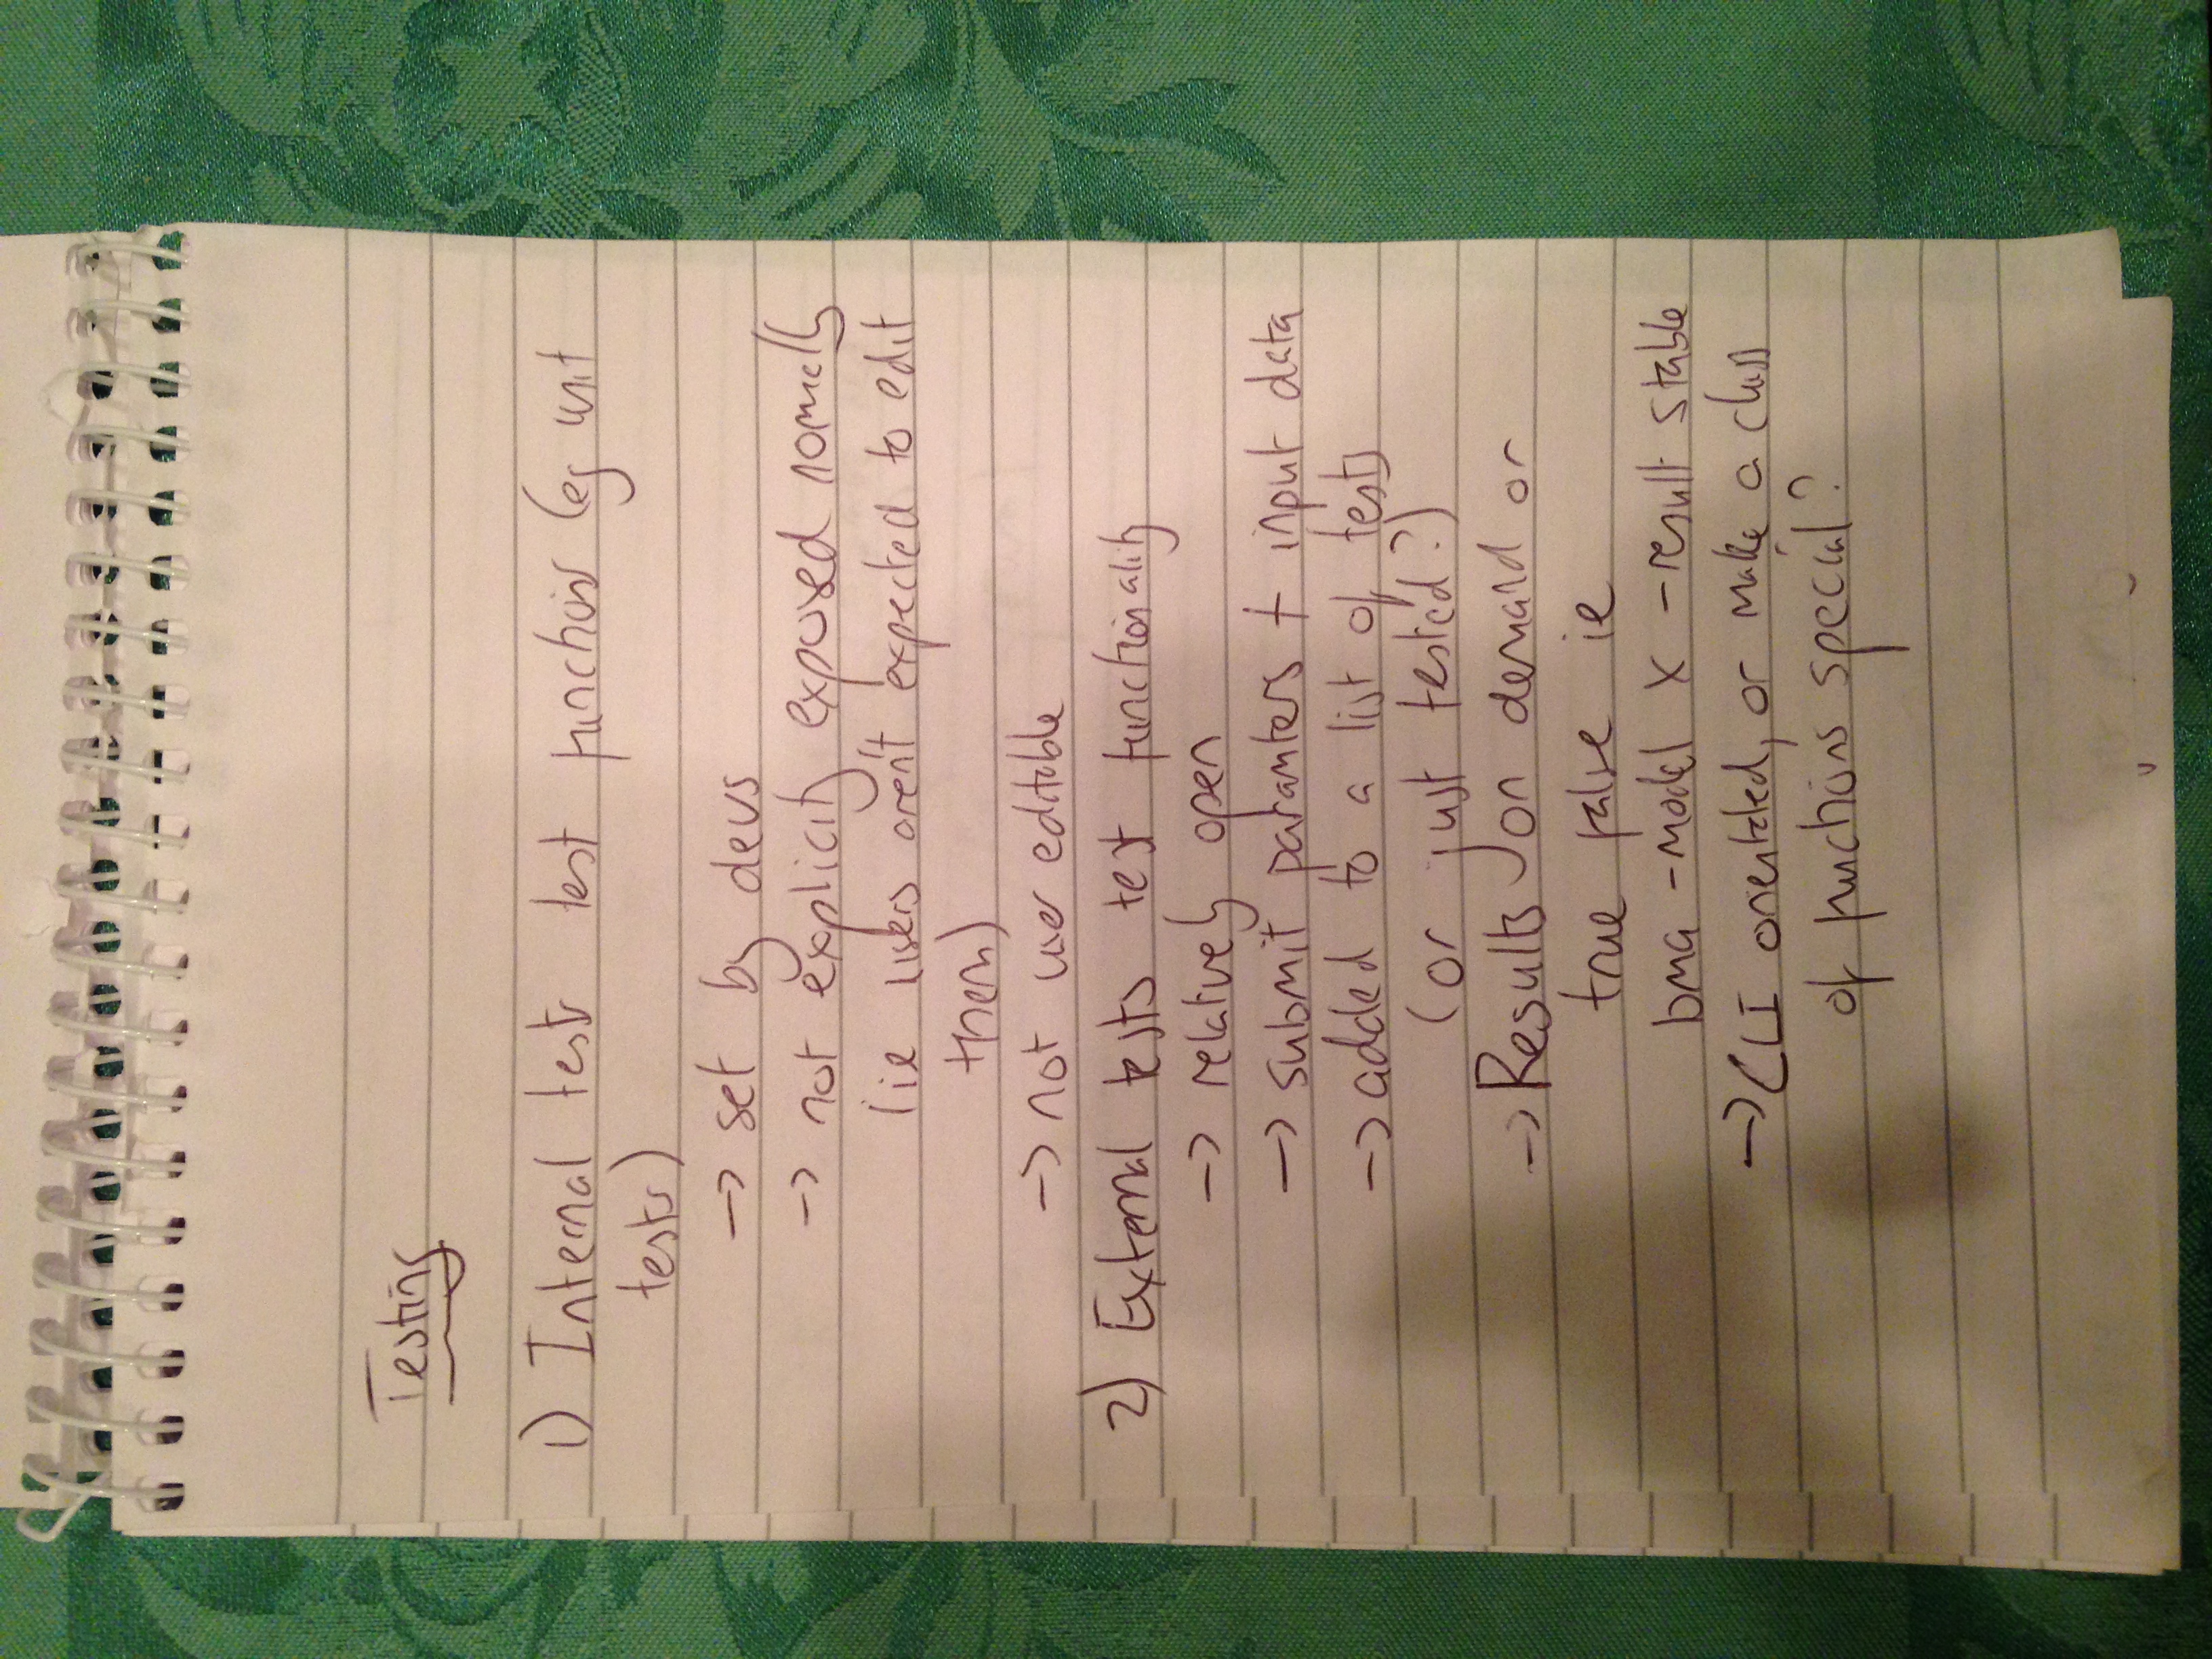 Testing
1) Internal tests test functions (eg unit
tests)
→ set by devs
→ not explicity exposed normally
(ie users aren't expected to edit
them)
→ not user editable
2) External tests test functionality
→ relatively open
→ submit paramters + input data
→ added to a list of tests
(or just tested?)
→ Results on demand or
true false ie
bma -model X -result stable
→ CLI orientated, or make a class
of functions special?